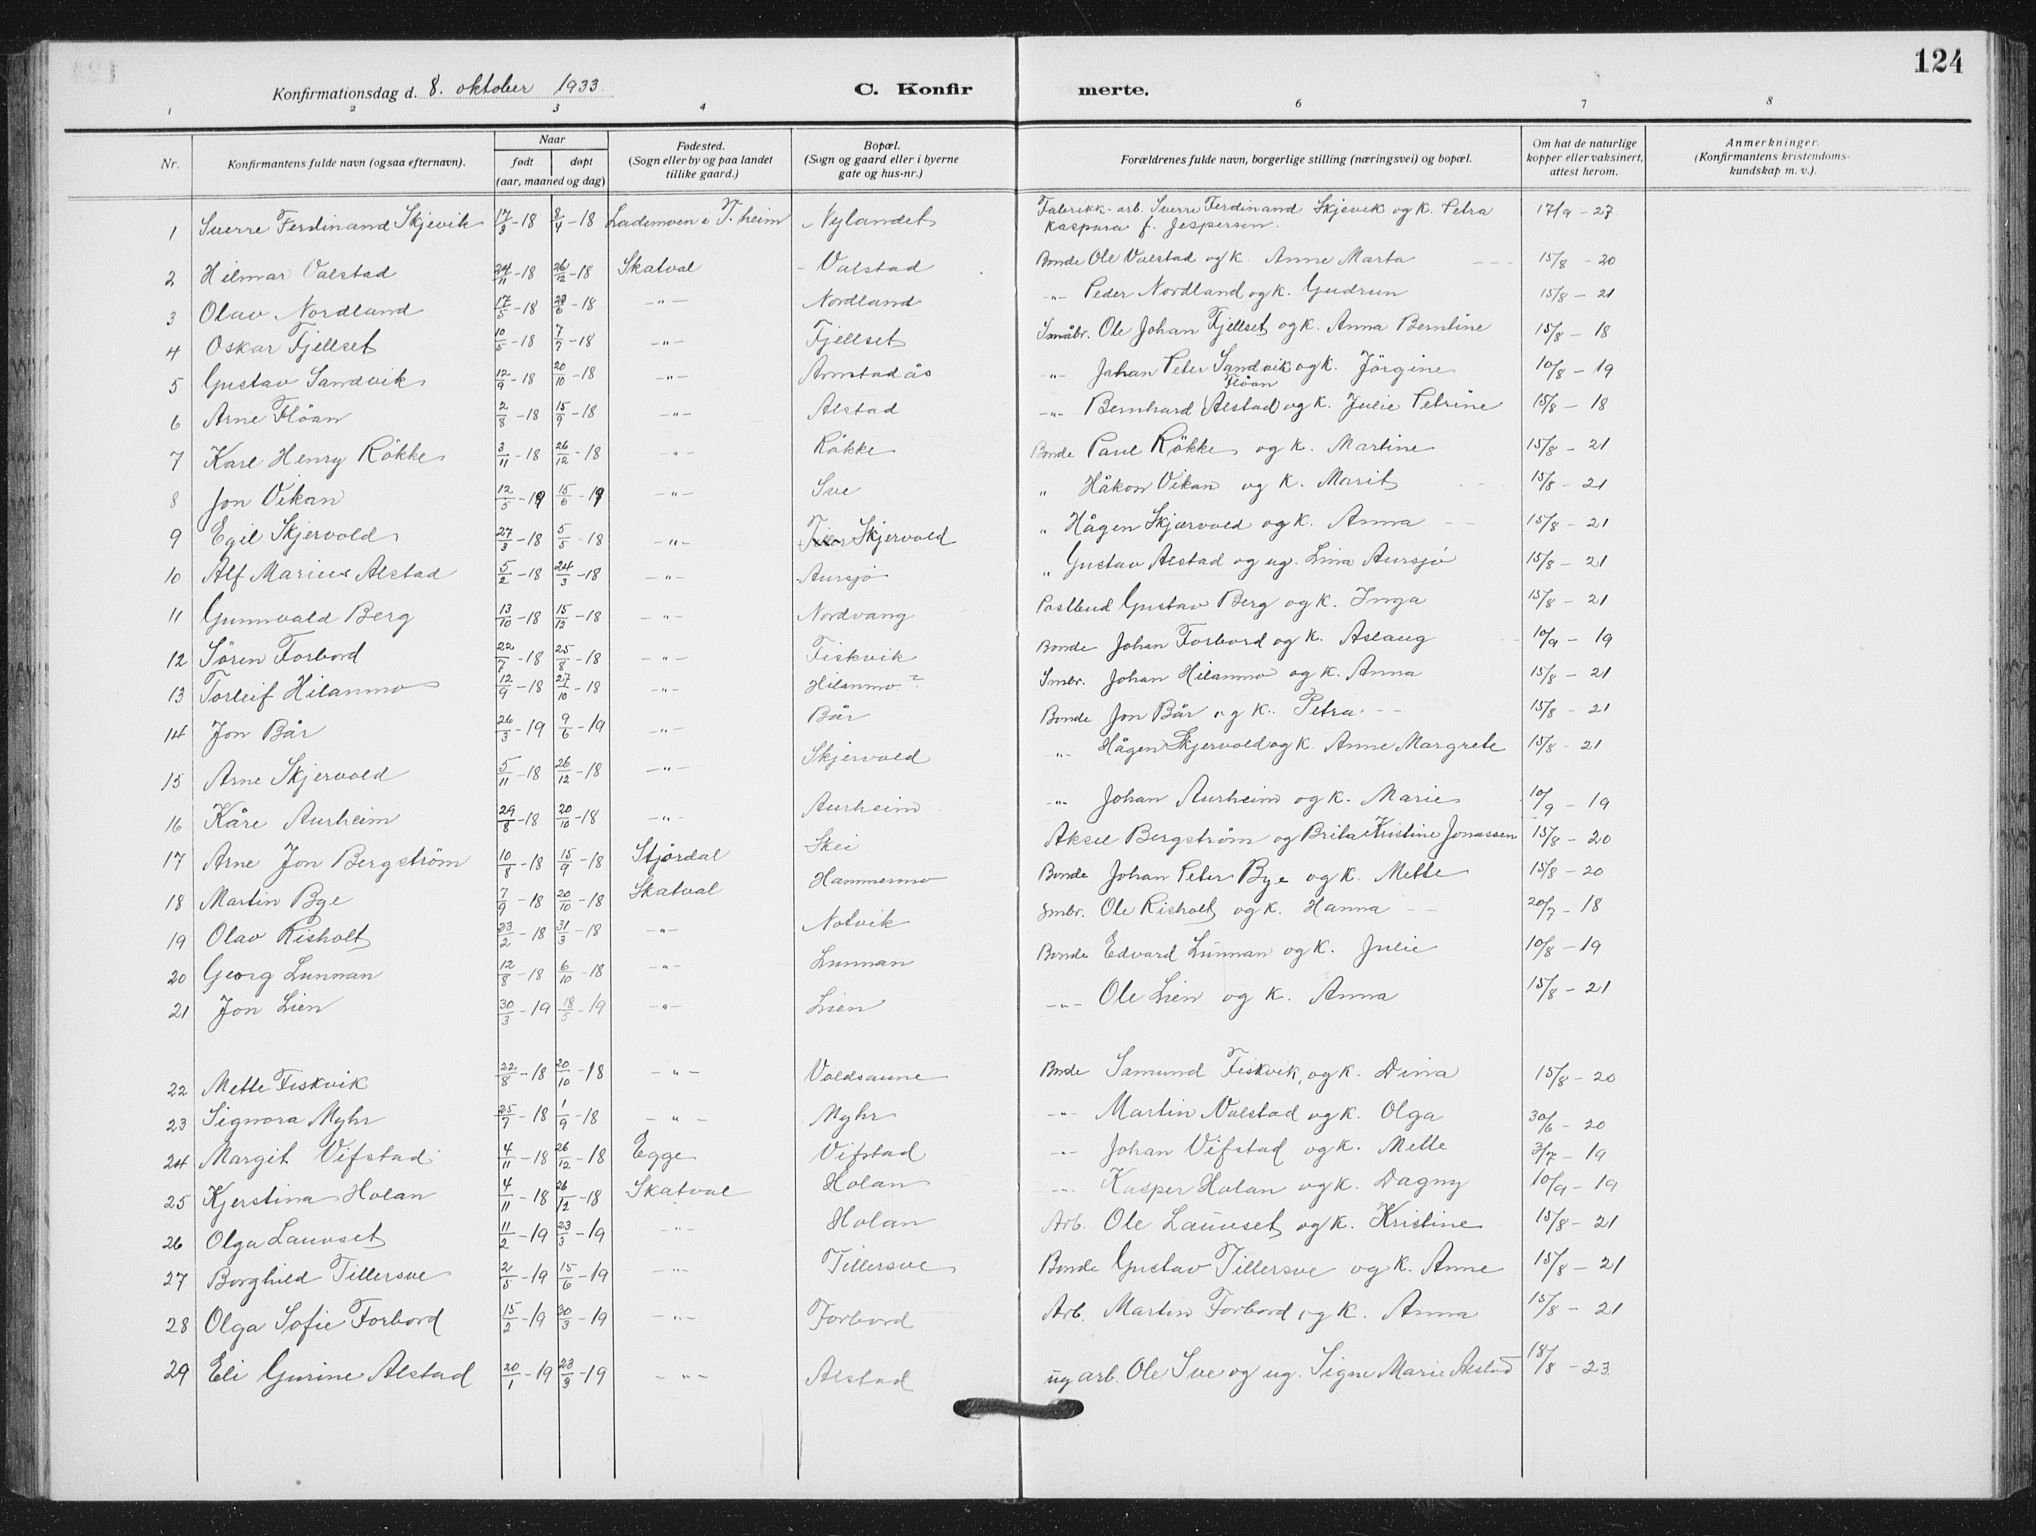 124
Konfirmationsdag d. 8. oktober 1933. C. Konfirmerte.
1 2 3 4 6 7 8
Nr. Konfirmantens fulde navn (ogsaa efternavn). Naar født døpt (aar, maaned og dag) Fødested. (Sogn eller by og paa landet tillike gaard.) Bopæl. (Sogn og gaard eller i byerne gate og hus-nr.) Forældrenes fulde navn, borgerlige stilling (næringsvei) og bopæl. Om hat de naturlige kopper eller vaksinert, attest herom. Anmerkninger. (Konfirmantens kristendomskundskap m. v.).
1 Sverre Ferdinand Skjevik 17/3-18 8/4-18 Lademoen i T.heim Nylandet Fabrikk-arb. Sverre Ferdinand Skjevik og k. Petra Kaspara f. Jespersen. 17/9-27
2 Hilmar Valstad 24/11-18 26/12-18 Skatval Valstad Bonde Ole Valstad og k. Anne Marta 15/8-20
3 Olav Nordland 17/5-18 23/6-18 -"- Nordland -"- Peder Nordland og k. Gudrun 15/8-21
4 Oskar Fjellset 10/5-18 7/7-18 -"- Fjellset Småbr. Ole Johan Fjellset og k. Anna Berntine 15/8-18
5 Gustav Sandvik 12/9-18 20/10-18 -"- Arnstadås -"- Johan Peter Sandvik og k. Jörgine 10/8-19
6 Arne Flöan 2/8-18 15/9-18 -"- Alstad -"- Bernhard Flöan (Alstad) og k. Julie Petrine 15/8-18
7 Karl Henry Rökke 3/11-18 26/12-18 -"- Rökke Bonde Paul Rökke og k. Martine 15/8-21
8 Jon Vikan 12/5-19 15/6-19 -"- Sve " Håkon Vikan og k. Marit 15/8-21
9 Egil Skjervold 27/3-18 5/5-18 -"- Skjervold " Hågen Skjærvold og k. Anna 15/8-21
10 Alf Marius Alstad 5/2-18 24/3-18 -"- Aursjö " Gustav Alstad og ug. Lina Aursjö 15/8-21
11 Gunnvald Berg 13/10-18 15/12-18 -"- Nordvang Postbud Gustav Berg og k. Inga 15/8-21
12 Sören Forbord 22/7-18 25/8-18 -"- Fiskvik Bonde Johan Forbord og k. Aslaug 10/9-19
13 Torleif Hilanmo 12/9-18 27/10-18 -"- Hilanmo ? Smbr. Johan Hilanmo og k. Anna 15/8-21
14 Jon Bår 26/3-19 9/6-19 -"- Bår Bonde Jon Bår og k. Petra 15/8-21
15 Arne Skjervold 5/11-18 26/12-18 -"- Skjervold -"- Hågen Skjervold og k. Anne Margrete 15/8-21
16 Kåre Aurheim 29/8-18 20/10-18 -"- Aurheim -"- Johan Aurheim og k. Marie 10/9-19
17 Arne Jon Bergström 10/8-18 15/9-18 Stjördal Skei Aksel Bergström og Brita Kristine Jonassen 15/8-20
18 Martin Bye 7/9-18 20/10-18 Skatval Hammermo Bonde Johan Peter Bye og k. Mette 15/8-20
19 Olav Risholt 23/2-18 31/3-18 -"- Notvik Smbr. Ole Risholt og k. Hanna 20/7-18
20 Georg Lunnan 12/8-18 6/10-18 -"- Lunnan Bonde Edvard Lunnan og k. Julie 10/8-19
21 Jon Lien 30/3-19 18/5-19 -"- Lien -"- Ole Lien og k. Anna 15/8-21
22 Mette Fiskvik 22/8-18 20/10-18 -"- Voldsaune Bonde Samund Fiskvik, og k. Dina 15/8-20
23 Signora Myhr 25/7-18 1/9-18 -"- Myhr -"- Martin Valstad og k. Olga 30/6-20
24 Margit Vifstad 4/11-18 26/12-18 Egge Vifstad -"- Johan Vifstad og k. Mette 3/7-19
25 Kjerstina Holan 4/11-18 26/12-18 Skatval Holan -"- Kasper Holan og k. Dagny 10/9-19
26 Olga Lauvset 11/2-19 23/3-19 -"- Holan Arb. Ole Lauvset og k. Kristine 15/8-21
27 Borghild Tillersve 2/5-19 15/6-19 -"- Tillersve Bonde Gustav Tillersve og k. Anne 15/8-21
28 Olga Sofie Forbord 15/2-19 30/3-19 -"- Forbord Arb. Martin Forbord og k. Anna 15/8-21
29 Eli Gurine Alstad 20/1-19 23/3-19 -"- Alstad ug arb. Ole Sve og ug. Signe Marie Alstad 18/8-23.